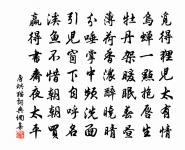 覓得狸兒太有情
烏蟬一點抱唇生
牡丹架暖眠春晝
薄荷香濃醉曉晴
分唾掌中頻洗面
引兒窗下自呼名
溪魚不惜朝朝買
贏得書齋夜太平